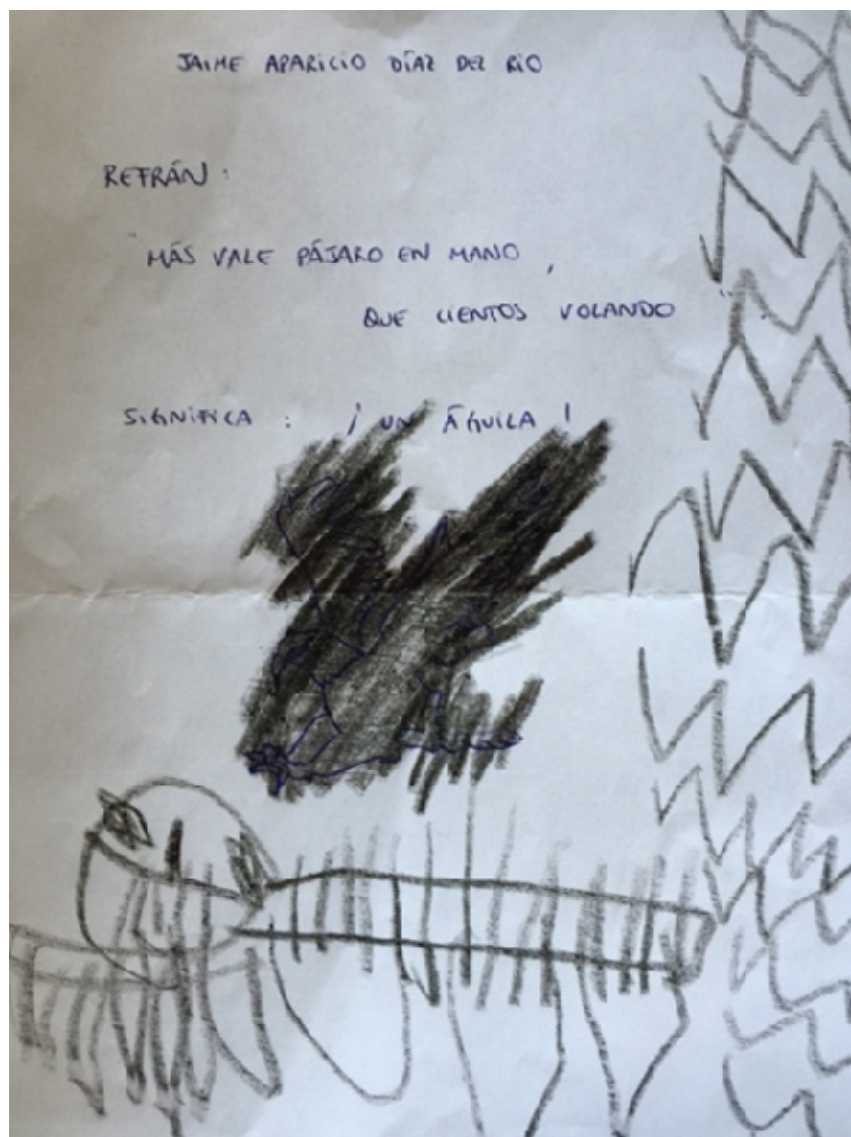 JAIME APARICIO DÍAZ DEL RIO
REFRÁN:
"MÁS VALE PÁJARO EN MANO,
QUE CIENTOS VOLANDO"
SIGNIFICA: ¡UN ÁGUILA!